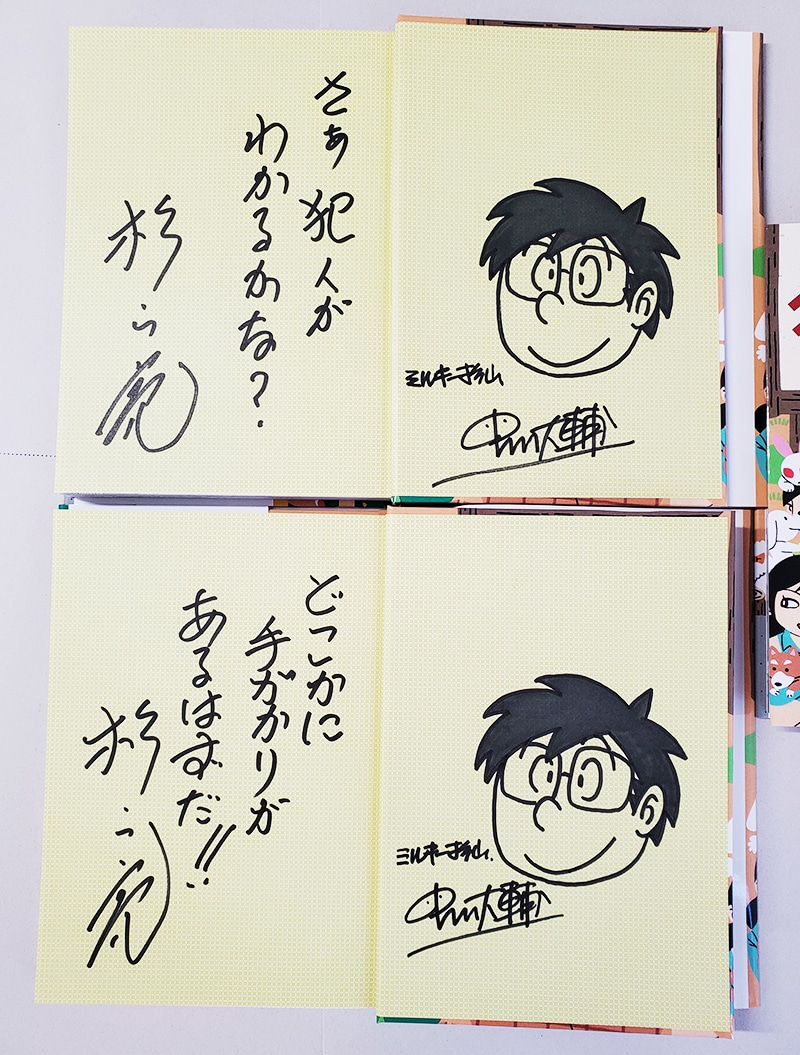 さあ 犯人が
わかるかな？
杉山亮
ミルキー杉山
中川大輔
どこかに
手がかりが
あるはずだ!!
杉山亮
ミルキー杉山
中川大輔